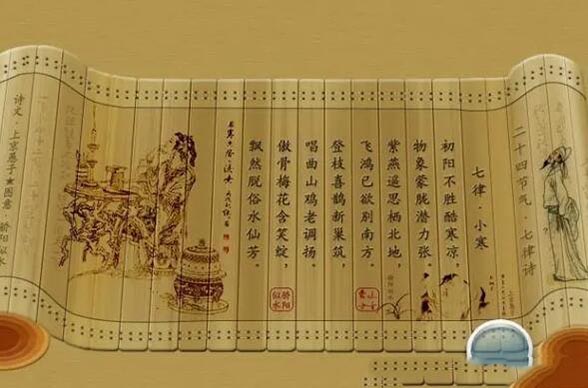 二十四节气·七律诗
七律·小寒
初阳不胜酷寒凉，
物象蒙胧潜力张。
紫燕遥思栖北地，
飞鸿已欲别南方。
登枝喜鹊新巢筑，
唱曲山鸡老调扬。
傲骨梅花含笑绽，
飘然脱俗水仙芳。
骄阳似水
诗文·上京燕子★图意·骄阳似水